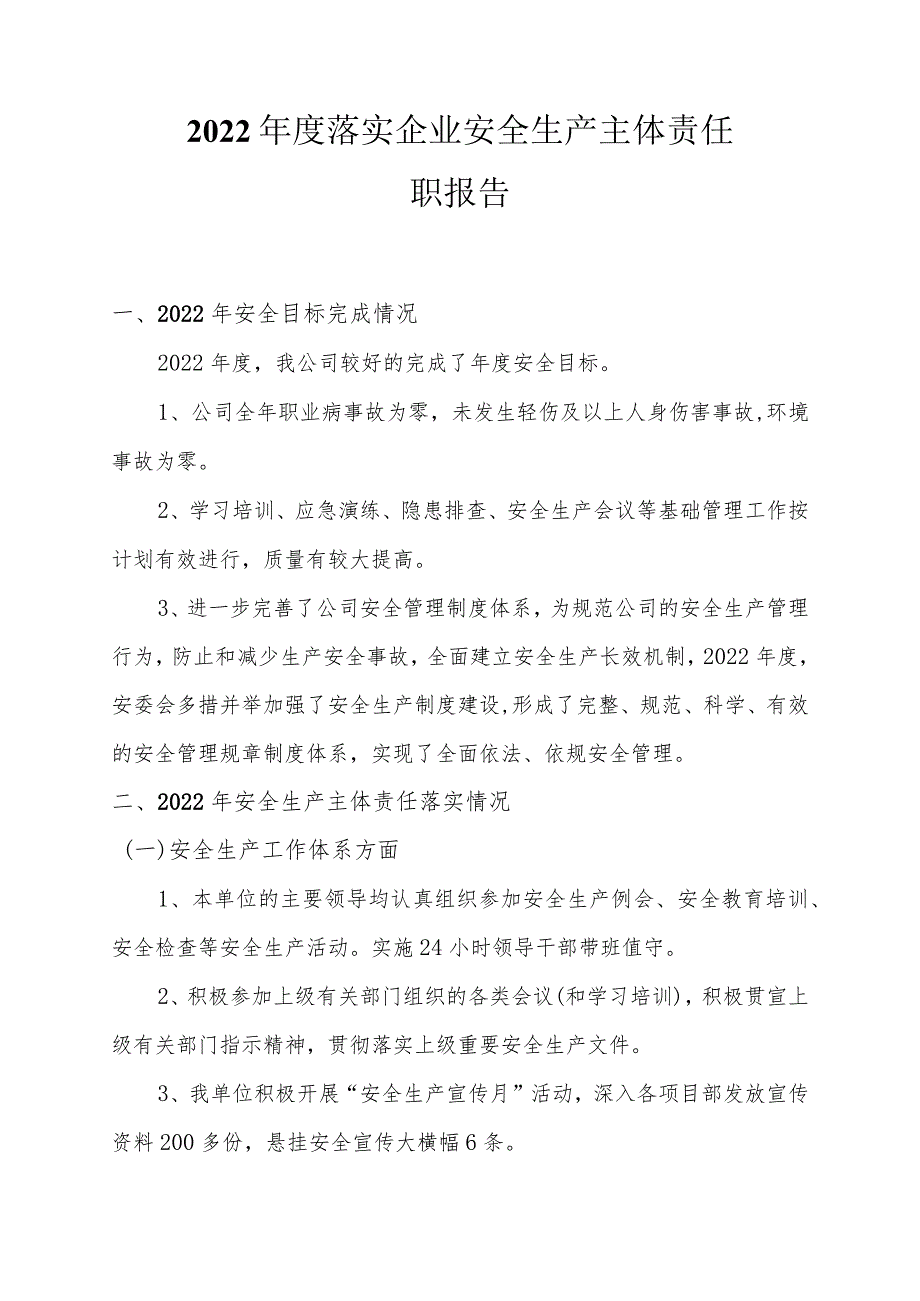 2022 年度落实企业安全生产主体责任
职报告
一、2022 年安全目标完成情况
2022 年度，我公司较好的完成了年度安全目标。
1、公司全年职业病事故为零，未发生轻伤及以上人身伤害事故,环境
事故为零。
2、学习培训、应急演练、隐患排查、安全生产会议等基础管理工作按
计划有效进行，质量有较大提高。
3、进一步完善了公司安全管理制度体系，为规范公司的安全生产管理
行为，防止和减少生产安全事故，全面建立安全生产长效机制，2022 年度，
安委会多措并举加强了安全生产制度建设,形成了完整、规范、科学、有效
的安全管理规章制度体系，实现了全面依法、依规安全管理。
二、2022 年安全生产主体责任落实情况
(一)安全生产工作体系方面
1、本单位的主要领导均认真组织参加安全生产例会、安全教育培训、
安全检查等安全生产活动。实施 24 小时领导干部带班值守。
2、积极参加上级有关部门组织的各类会议(和学习培训)，积极贯宣上
级有关部门指示精神，贯彻落实上级重要安全生产文件。
3、我单位积极开展“安全生产宣传月”活动，深入各项目部发放宣传
资料 200 多份，悬挂安全宣传大横幅 6 条。